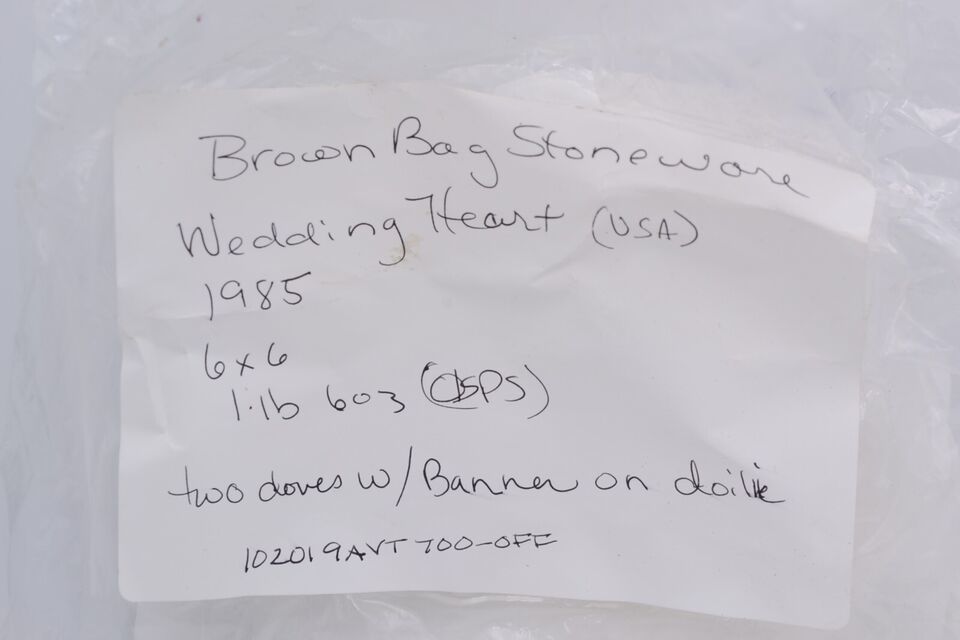 Brown Bag Stoneware
Wedding Heart (USA)
1985
6x6
1lb 6oz (USPS)
two doves w/Banner on doilie
102019AVT700-OFF